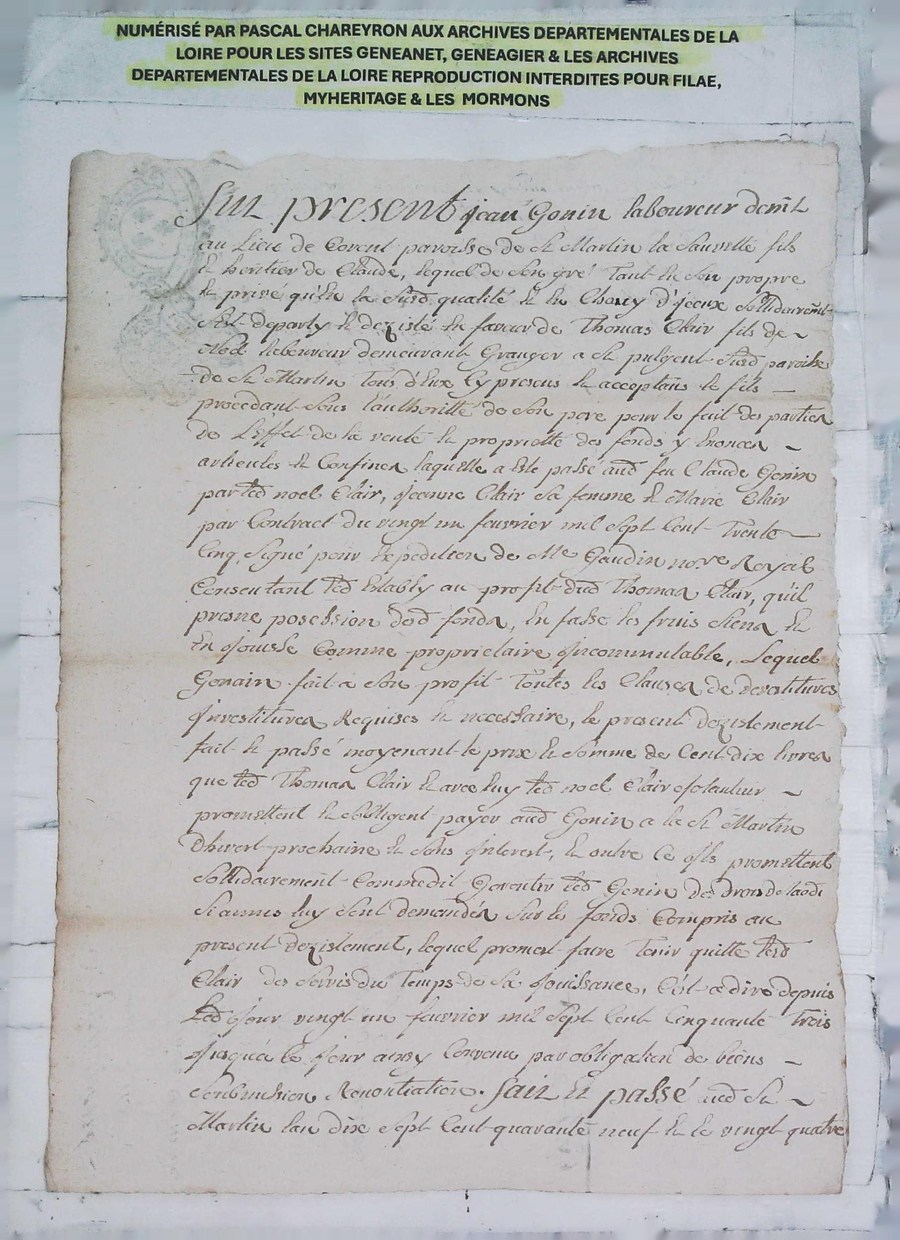 NUMÉRISÉ PAR PASCAL CHAREYRON AUX ARCHIVES DEPARTEMENTALES DE LA
LOIRE POUR LES SITES GENEANET, GENEAGIER & LES ARCHIVES
DEPARTEMENTALES DE LA LOIRE REPRODUCTION INTERDITES POUR FILAE,
MYHERITAGE & LES MORMONS
Fut present jean Gonin laboureur demt
au Lieu de Corent paroisse de St Martin la Sauveté fils
& heritier de Claude, lequel de Son gré tant En Son propre
& privé qu'En la Susd qualité & En Chacun d'jceux Sollidairemt
Est departy & dezisté En faveur de Thomas Clair fils de
Noel laboureur demeurant Granger a St pulgent Susd paroisse
de St Martin tous d'Eux Cy presens & acceptans le fils
procedant Sous l'authoritté de Son pere pour le fait des parties
de L'Effet de la vente & proprietté des fonds y Enoncés
articulés & Confinés laquelle a Esté passé aud feu Claude Gonin
par led noel Clair, Jeanne Clair Sa femme & Marie Clair
par Contract du vingt un feuvrier mil Sept Cent Trente
Cinq, Signé pour Expedition de Me Gaudin nore Royal
Consentant led Etably au profit dud Thomas Clair, qu'il
prenne posession desd fonds, En fasse les fruis Siens &
En Jouisse Comme proprietaire Incommutable, Lequel
Gonin fait a Son profit toutes les Clauses de devetitures
Investitures Requises & necessaire, le present dezistement
fait & passé moyenant le prix & Somme de Cent dix livres
que led Thomas Clair & avec luy led noel Clair
promettent & obligent payer aud Gonin a la St Martin
Dhivert prochaine & Sans Interest, & outre Ce Ils promettent
Sollidairement Comme dit Garentir led Gonin de drois de laods
Si aunes luy Sont demandés Sur les fonds Compris au
present dezistement, lequel promet faire tenir quitte lesd
Clair des Servis du temps de Sa Jouissance, C'est a dire depuis
Led Jour vingt un feuvrier mil Sept Cent Cinquante trois
Jusqu'a Ce Jour ainsy Convenu par obligation de biens
Soubmission Renontiation. Fait Et passé aud St
Martin lan dix Sept Cent quarante neuf & le vingt quatre